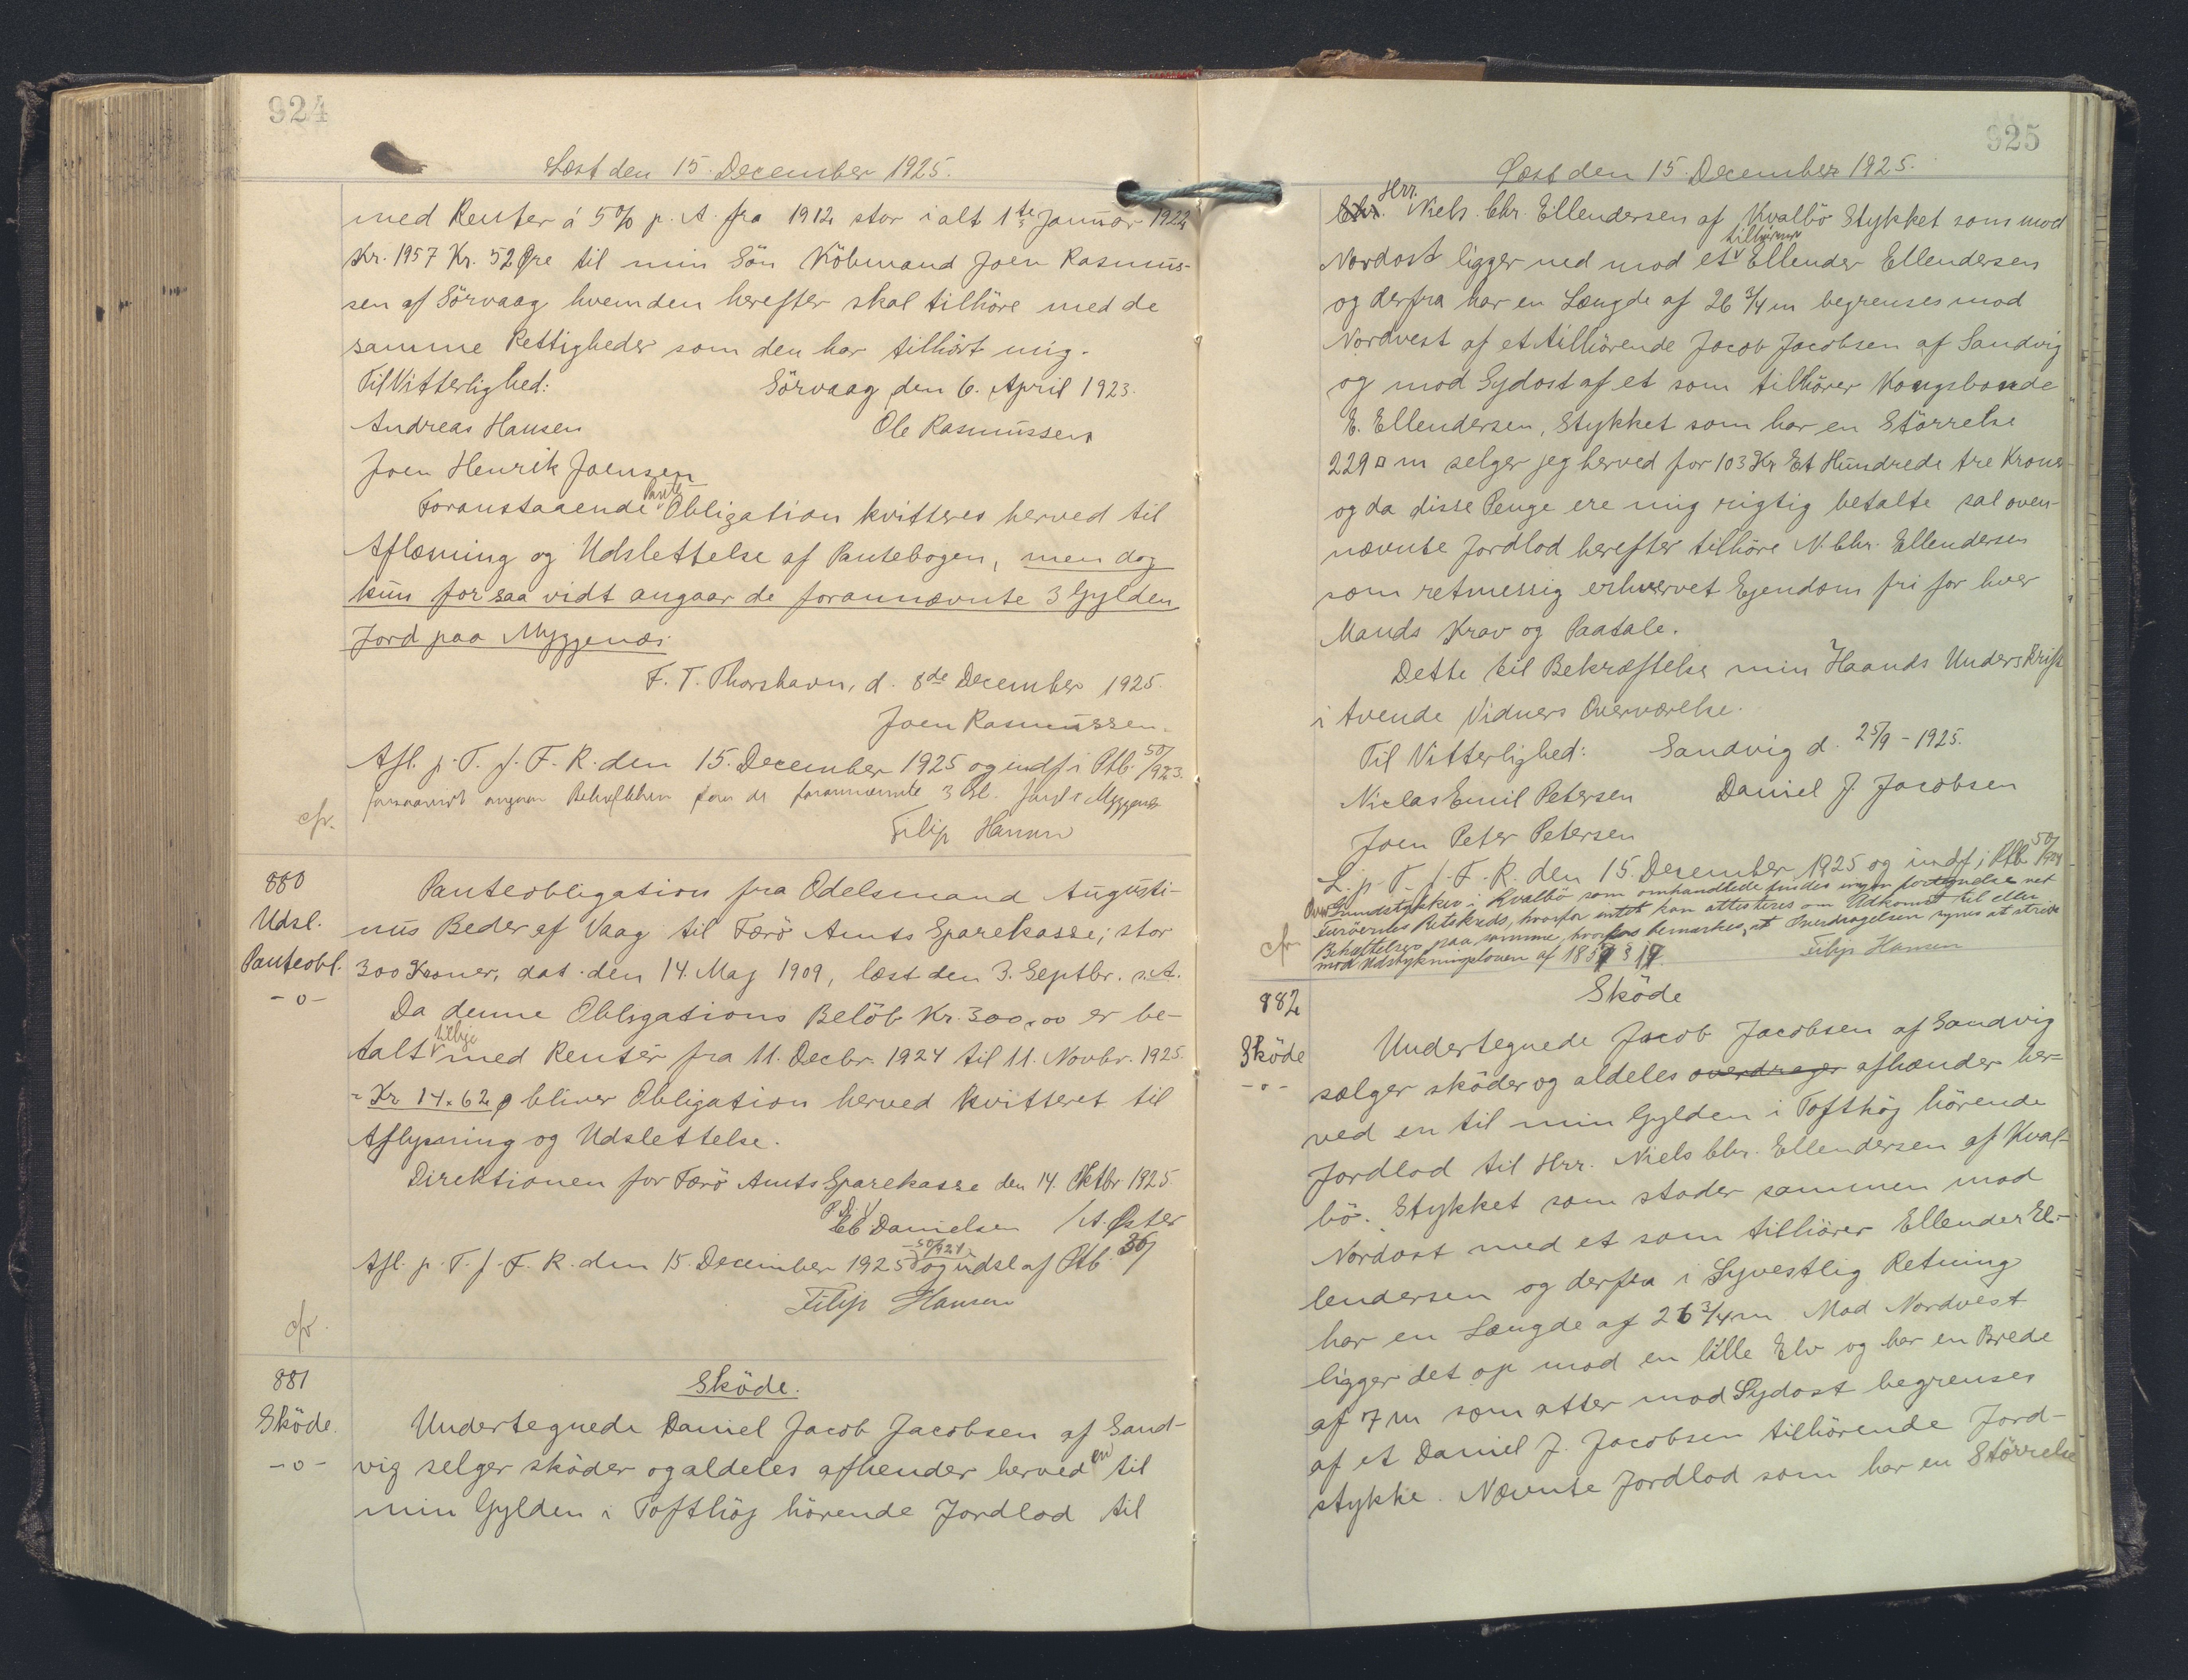 924
Læst den 15. December 1925.
med Renter á 5% p. A. fra 1912 stor i alt 1te Januar 1922
Kr. 1957 Kr. 52 Øre til min Sön Köbmand Joen Rasmus-
sen af Sörvaag hvem den herefter skal tilhöre med de
samme Rettigheder som den har tilhört mig.
Til Vitterlighed: Sörvaag den 6. April 1923.
Andreas Hansen Ole Rasmussen
Joen Henrik Joensen
Foranstaaende Pante Obligation kvitteres herved til
Aflæsning og Udslettelse af Pantebogen, men dog
kun for saa vidt angaar de forannævnte 3 Gylden
Jord paa Myggenæs.
F. T. Thorshavn, d. 8de December 1925.
Joen Rasmussen.
Afl. p. T. f. F. R. den 15. December 1925 og indf i Ptb. 50/923.
forsaavidt angaar Behæftelsen paa de forannævnte 3 Gl. Jord i Myggenæs
cfr. Filip Hansen
880
Udsl.
Panteobl.
-o-
Panteobligation fra Odelsmand Augusti-
nus Beder af Vaag til Færö Amts Sparekasse; stor
300 Kroner, dat. den 14. Maj 1909, læst den 3. Septbr. s. A.
Da denne Obligations Belöb Kr. 300,00 er be-
talt tillige med Renter fra 11. Decbr. 1924 til 11. Novbr. 1925
= Kr 14.62 ø bliver Obligation herved kvitteret til
Aflysning og Udslettelse.
Direktionen for Færö Amts Sparekasse den 14. Oktbr 1925
P. D. V
Eb Danielsen / A. Øster
Afl. p. T. f. F. R. den 15. December 1925 50/924 og udsl af Ptb. 36/
Filip Hansen
cfr.
881
Sköde.
-o-
Sköde.
Undertegnede Daniel Jacob Jacobsen af Sand-
vig selger sköder og aldeles afhender herved en til
min Gylden i Tofthöj hörende Jordlod til
925
Læst den 15. December 1925.
Chr. Hrr. Niels Chr. Ellendersen af Kvalbö Stykket som mod
Nordost ligger ned mod et tilhörende Ellender Ellendersen
og derfra har en Længde af 26 3/4 m begrenses mod
Nordvest af et tilhörende Jacob Jacobsen af Sandvig
og mod Sydost af et som tilhörer Kongsbonde
E. Ellendersen, Stykket som har en Störrelse
229 □ m selger jeg herved for 103 Kr Et Hundrede tre Kroner
og da disse Penge ere mig rigtig betalte sal oven-
nævnte Jordlod herefter tilhöre N. Chr. Ellendersen
som retmessig erhvervet Ejendom fri for hver
Mands Krav og Paatale.
Dette til Bekræftelse min Haands Underskrift
i tvende Vidners Overværelse.
Til Vitterlighed: Sandvig d. 25/9 - 1925.
Niclas Emil Petersen Daniel J. Jacobsen
Joen Peter Petersen
L. p. T. f. F. R. den 15. December 1925 og indf i Ptb. 50/924
Over Grundstykker i Kvalbö som omhandlede findes ingen fortegnelse ved
Færöernes Retskreds, hvorfor intet kan attesteres om Adkomst til eller
Behæftelser paa samme, hvorfor bemærkes, at Overdragelsen synes at stride
mod Udstykningsloven af 1857 § 17.
cfr. Filip Hansen
882
Sköde
-o-
Sköde
Undertegnede Jacob Jacobsen af Sandvig
sælger sköder og aldeles overdrager afhænder her-
ved en til min Gylden i Tofthöj hörende
Jordlod til Hrr. Niels Chr. Ellendersen af Kval-
bö. Stykket som stöder sammen mod
Nordost med et som tilhörer Ellender El-
lendersen og derfra i Syvestlig Retning
har en Længde af 26 3/4 m Mod Nordvest
ligger det op mod en lille Elv og har en Brede
af 7 m som atter mod Sydost begrenses
af et Daniel J. Jacobsen tilhörende Jord-
stykke. Nævnte Jordlod som har en Störrelse